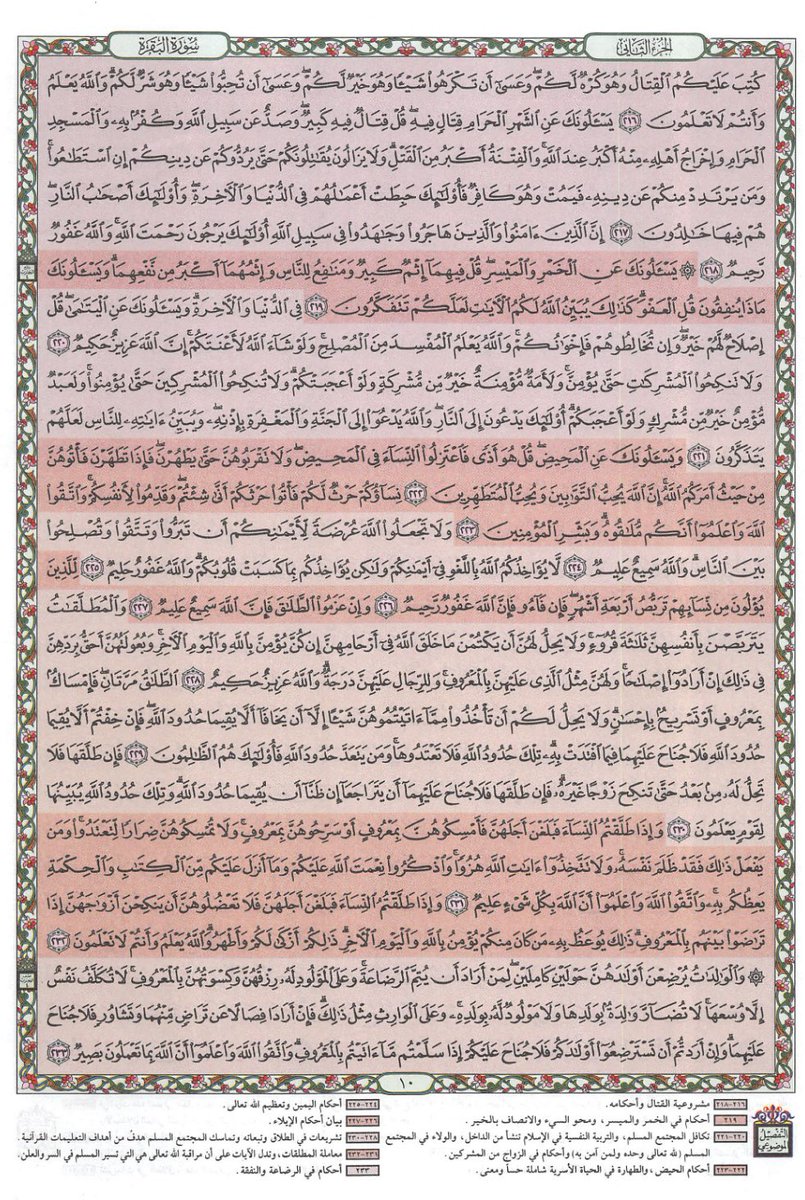 الجزء الثاني
سورة البقرة
كُتِبَ عَلَيْكُمُ ٱلْقِتَالُ وَهُوَ كُرْهٌ لَّكُمْ ۖ وَعَسَىٰٓ أَن تَكْرَهُوا۟ شَيْـًٔا وَهُوَ خَيْرٌ لَّكُمْ ۖ وَعَسَىٰٓ أَن تُحِبُّوا۟ شَيْـًٔا وَهُوَ شَرٌّ لَّكُمْ ۗ وَٱللَّهُ يَعْلَمُ
وَأَنتُمْ لَا تَعْلَمُونَ ٢١٦ يَسْـَٔلُونَكَ عَنِ ٱلشَّهْرِ ٱلْحَرَامِ قِتَالٍ فِيهِ ۖ قُلْ قِتَالٌ فِيهِ كَبِيرٌ ۖ وَصَدٌّ عَن سَبِيلِ ٱللَّهِ وَكُفْرٌۢ بِهِۦ وَٱلْمَسْجِدِ
ٱلْحَرَامِ وَإِخْرَاجُ أَهْلِهِۦ مِنْهُ أَكْبَرُ عِندَ ٱللَّهِ ۚ وَٱلْفِتْنَةُ أَكْبَرُ مِنَ ٱلْقَتْلِ ۗ وَلَا يَزَالُونَ يُقَـٰتِلُونَكُمْ حَتَّىٰ يَرُدُّوكُمْ عَن دِينِكُمْ إِنِ ٱسْتَطَـٰعُوا۟ ۚ
وَمَن يَرْتَدِدْ مِنكُمْ عَن دِينِهِۦ فَيَمُتْ وَهُوَ كَافِرٌ فَأُو۟لَـٰٓئِكَ حَبِطَتْ أَعْمَـٰلُهُمْ فِى ٱلدُّنْيَا وَٱلْـَٔاخِرَةِ ۖ وَأُو۟لَـٰٓئِكَ أَصْحَـٰبُ ٱلنَّارِ ۖ
هُمْ فِيهَا خَـٰلِدُونَ ٢١٧ إِنَّ ٱلَّذِينَ ءَامَنُوا۟ وَٱلَّذِينَ هَاجَرُوا۟ وَجَـٰهَدُوا۟ فِى سَبِيلِ ٱللَّهِ أُو۟لَـٰٓئِكَ يَرْجُونَ رَحْمَتَ ٱللَّهِ ۚ وَٱللَّهُ غَفُورٌ
رَّحِيمٌ ٢١٨ ۞ يَسْـَٔلُونَكَ عَنِ ٱلْخَمْرِ وَٱلْمَيْسِرِ ۖ قُلْ فِيهِمَآ إِثْمٌ كَبِيرٌ وَمَنَـٰفِعُ لِلنَّاسِ وَإِثْمُهُمَآ أَكْبَرُ مِن نَّفْعِهِمَا ۗ وَيَسْـَٔلُونَكَ
مَاذَا يُنفِقُونَ قُلِ ٱلْعَفْوَ ۗ كَذَٰلِكَ يُبَيِّنُ ٱللَّهُ لَكُمُ ٱلْـَٔايَـٰتِ لَعَلَّكُمْ تَتَفَكَّرُونَ ٢١٩ فِى ٱلدُّنْيَا وَٱلْـَٔاخِرَةِ ۗ وَيَسْـَٔلُونَكَ عَنِ ٱلْيَتَـٰمَىٰ ۖ قُلْ
إِصْلَاحٌ لَّهُمْ خَيْرٌ ۖ وَإِن تُخَالِطُوهُمْ فَإِخْوَٰنُكُمْ ۚ وَٱللَّهُ يَعْلَمُ ٱلْمُفْسِدَ مِنَ ٱلْمُصْلِحِ ۚ وَلَوْ شَآءَ ٱللَّهُ لَأَعْنَتَكُمْ ۚ إِنَّ ٱللَّهَ عَزِيزٌ حَكِيمٌ ٢٢٠
وَلَا تَنكِحُوا۟ ٱلْمُشْرِكَـٰتِ حَتَّىٰ يُؤْمِنَّ ۚ وَلَأَمَةٌ مُّؤْمِنَةٌ خَيْرٌ مِّن مُّشْرِكَةٍ وَلَوْ أَعْجَبَتْكُمْ ۗ وَلَا تُنكِحُوا۟ ٱلْمُشْرِكِينَ حَتَّىٰ يُؤْمِنُوا۟ ۚ وَلَعَبْدٌ
مُّؤْمِنٌ خَيْرٌ مِّن مُّشْرِكٍ وَلَوْ أَعْجَبَكُمْ ۗ أُو۟لَـٰٓئِكَ يَدْعُونَ إِلَى ٱلنَّارِ ۖ وَٱللَّهُ يَدْعُوٓا۟ إِلَى ٱلْجَنَّةِ وَٱلْمَغْفِرَةِ بِإِذْنِهِۦ ۖ وَيُبَيِّنُ ءَايَـٰتِهِۦ لِلنَّاسِ لَعَلَّهُمْ
يَتَذَكَّرُونَ ٢٢١ وَيَسْـَٔلُونَكَ عَنِ ٱلْمَحِيضِ ۖ قُلْ هُوَ أَذًى فَٱعْتَزِلُوا۟ ٱلنِّسَآءَ فِى ٱلْمَحِيضِ ۖ وَلَا تَقْرَبُوهُنَّ حَتَّىٰ يَطْهُرْنَ ۖ فَإِذَا تَطَهَّرْنَ فَأْتُوهُنَّ
مِنْ حَيْثُ أَمَرَكُمُ ٱللَّهُ ۚ إِنَّ ٱللَّهَ يُحِبُّ ٱلتَّوَّٰبِينَ وَيُحِبُّ ٱلْمُتَطَهِّرِينَ ٢٢٢ نِسَآؤُكُمْ حَرْثٌ لَّكُمْ فَأْتُوا۟ حَرْثَكُمْ أَنَّىٰ شِئْتُمْ ۖ وَقَدِّمُوا۟ لِأَنفُسِكُمْ ۚ وَٱتَّقُوا۟
ٱللَّهَ وَٱعْلَمُوٓا۟ أَنَّكُم مُّلَـٰقُوهُ ۗ وَبَشِّرِ ٱلْمُؤْمِنِينَ ٢٢٣ وَلَا تَجْعَلُوا۟ ٱللَّهَ عُرْضَةً لِّأَيْمَـٰنِكُمْ أَن تَبَرُّوا۟ وَتَتَّقُوا۟ وَتُصْلِحُوا۟
بَيْنَ ٱلنَّاسِ ۗ وَٱللَّهُ سَمِيعٌ عَلِيمٌ ٢٢٤ لَّا يُؤَاخِذُكُمُ ٱللَّهُ بِٱللَّغْوِ فِىٓ أَيْمَـٰنِكُمْ وَلَـٰكِن يُؤَاخِذُكُم بِمَا كَسَبَتْ قُلُوبُكُمْ ۗ وَٱللَّهُ غَفُورٌ حَلِيمٌ ٢٢٥ لِّلَّذِينَ
يُؤْلُونَ مِن نِّسَآئِهِمْ تَرَبُّصُ أَرْبَعَةِ أَشْهُرٍ ۖ فَإِن فَآءُو فَإِنَّ ٱللَّهَ غَفُورٌ رَّحِيمٌ ٢٢٦ وَإِنْ عَزَمُوا۟ ٱلطَّلَـٰقَ فَإِنَّ ٱللَّهَ سَمِيعٌ عَلِيمٌ ٢٢٧ وَٱلْمُطَلَّقَـٰتُ
يَتَرَبَّصْنَ بِأَنفُسِهِنَّ ثَلَـٰثَةَ قُرُوٓءٍ ۚ وَلَا يَحِلُّ لَهُنَّ أَن يَكْتُمْنَ مَا خَلَقَ ٱللَّهُ فِىٓ أَرْحَامِهِنَّ إِن كُنَّ يُؤْمِنَّ بِٱللَّهِ وَٱلْيَوْمِ ٱلْـَٔاخِرِ ۚ وَبُعُولَتُهُنَّ أَحَقُّ بِرَدِّهِنَّ
فِى ذَٰلِكَ إِنْ أَرَادُوٓا۟ إِصْلَـٰحًا ۚ وَلَهُنَّ مِثْلُ ٱلَّذِى عَلَيْهِنَّ بِٱلْمَعْرُوفِ ۚ وَلِلرِّجَالِ عَلَيْهِنَّ دَرَجَةٌ ۗ وَٱللَّهُ عَزِيزٌ حَكِيمٌ ٢٢٨ ٱلطَّلَـٰقُ مَرَّتَانِ ۖ فَإِمْسَاكٌۢ
بِمَعْرُوفٍ أَوْ تَسْرِيحٌۢ بِإِحْسَـٰنٍ ۗ وَلَا يَحِلُّ لَكُمْ أَن تَأْخُذُوا۟ مِمَّآ ءَاتَيْتُمُوهُنَّ شَيْـًٔا إِلَّآ أَن يَخَافَآ أَلَّا يُقِيمَا حُدُودَ ٱللَّهِ ۖ فَإِنْ خِفْتُمْ أَلَّا يُقِيمَا
حُدُودَ ٱللَّهِ فَلَا جُنَاحَ عَلَيْهِمَا فِيمَا ٱفْتَدَتْ بِهِۦ ۗ تِلْكَ حُدُودُ ٱللَّهِ فَلَا تَعْتَدُوهَا ۚ وَمَن يَتَعَدَّ حُدُودَ ٱللَّهِ فَأُو۟لَـٰٓئِكَ هُمُ ٱلظَّـٰلِمُونَ ٢٢٩ فَإِن طَلَّقَهَا فَلَا
تَحِلُّ لَهُۥ مِنۢ بَعْدُ حَتَّىٰ تَنكِحَ زَوْجًا غَيْرَهُۥ ۗ فَإِن طَلَّقَهَا فَلَا جُنَاحَ عَلَيْهِمَآ أَن يَتَرَاجَعَآ إِن ظَنَّآ أَن يُقِيمَا حُدُودَ ٱللَّهِ ۗ وَتِلْكَ حُدُودُ ٱللَّهِ يُبَيِّنُهَا
لِقَوْمٍ يَعْلَمُونَ ٢٣٠ وَإِذَا طَلَّقْتُمُ ٱلنِّسَآءَ فَبَلَغْنَ أَجَلَهُنَّ فَأَمْسِكُوهُنَّ بِمَعْرُوفٍ أَوْ سَرِّحُوهُنَّ بِمَعْرُوفٍ ۚ وَلَا تُمْسِكُوهُنَّ ضِرَارًا لِّتَعْتَدُوا۟ ۚ وَمَن
يَفْعَلْ ذَٰلِكَ فَقَدْ ظَلَمَ نَفْسَهُۥ ۚ وَلَا تَتَّخِذُوٓا۟ ءَايَـٰتِ ٱللَّهِ هُزُوًا ۚ وَٱذْكُرُوا۟ نِعْمَتَ ٱللَّهِ عَلَيْكُمْ وَمَآ أَنزَلَ عَلَيْكُم مِّنَ ٱلْكِتَـٰبِ وَٱلْحِكْمَةِ
يَعِظُكُم بِهِۦ ۚ وَٱتَّقُوا۟ ٱللَّهَ وَٱعْلَمُوٓا۟ أَنَّ ٱللَّهَ بِكُلِّ شَىْءٍ عَلِيمٌ ٢٣١ وَإِذَا طَلَّقْتُمُ ٱلنِّسَآءَ فَبَلَغْنَ أَجَلَهُنَّ فَلَا تَعْضُلُوهُنَّ أَن يَنكِحْنَ أَزْوَٰجَهُنَّ إِذَا
تَرَٰضَوْا۟ بَيْنَهُم بِٱلْمَعْرُوفِ ۗ ذَٰلِكَ يُوعَظُ بِهِۦ مَن كَانَ مِنكُمْ يُؤْمِنُ بِٱللَّهِ وَٱلْيَوْمِ ٱلْـَٔاخِرِ ۗ ذَٰلِكُمْ أَزْكَىٰ لَكُمْ وَأَطْهَرُ ۗ وَٱللَّهُ يَعْلَمُ وَأَنتُمْ لَا تَعْلَمُونَ ٢٣٢
۞ وَٱلْوَٰلِدَٰتُ يُرْضِعْنَ أَوْلَـٰدَهُنَّ حَوْلَيْنِ كَامِلَيْنِ ۖ لِمَنْ أَرَادَ أَن يُتِمَّ ٱلرَّضَاعَةَ ۚ وَعَلَى ٱلْمَوْلُودِ لَهُۥ رِزْقُهُنَّ وَكِسْوَتُهُنَّ بِٱلْمَعْرُوفِ ۚ لَا تُكَلَّفُ نَفْسٌ
إِلَّا وُسْعَهَا ۚ لَا تُضَآرَّ وَٰلِدَةٌۢ بِوَلَدِهَا وَلَا مَوْلُودٌ لَّهُۥ بِوَلَدِهِۦ ۚ وَعَلَى ٱلْوَارِثِ مِثْلُ ذَٰلِكَ ۗ فَإِنْ أَرَادَا فِصَالًا عَن تَرَاضٍ مِّنْهُمَا وَتَشَاوُرٍ فَلَا جُنَاحَ
عَلَيْهِمَا ۗ وَإِنْ أَرَدتُّمْ أَن تَسْتَرْضِعُوٓا۟ أَوْلَـٰدَكُمْ فَلَا جُنَاحَ عَلَيْكُمْ إِذَا سَلَّمْتُم مَّآ ءَاتَيْتُم بِٱلْمَعْرُوفِ ۗ وَٱتَّقُوا۟ ٱللَّهَ وَٱعْلَمُوٓا۟ أَنَّ ٱللَّهَ بِمَا تَعْمَلُونَ بَصِيرٌ ٢٣٣
١٠
التفصيل الموضوعي
٢١٦-٢١٨ مشروعية القتال وأحكامه.
٢١٩ أحكام في الخمر والميسر، ومحو السيء والاتصاف بالخير.
٢٢٠-٢٢١ تكافل المجتمع المسلم، والتربية النفسية في الإسلام تنشأ من الداخل، والولاء في المجتمع
المسلم (لله تعالى وحده ولمن آمن به) وأحكام في الزواج من المشركين.
٢٢٢-٢٢٣ أحكام الحيض، والطهارة في الحياة الأسرية شاملة حساً ومعنى.
٢٢٤-٢٢٥ أحكام اليمين وتعظيم الله تعالى.
٢٢٦-٢٢٧ بيان أحكام الإيلاء.
٢٢٨-٢٣٠ تشريعات في الطلاق وتبعاته وتماسك المجتمع المسلم هدف من أهداف التعليمات القرآنية.
٢٣١-٢٣٢ معاملة المطلقات، وتدل الآيات على أن مراقبة الله تعالى هي التي تسير المسلم في السر والعلن.
٢٣٣ أحكام في الرضاعة والنفقة.